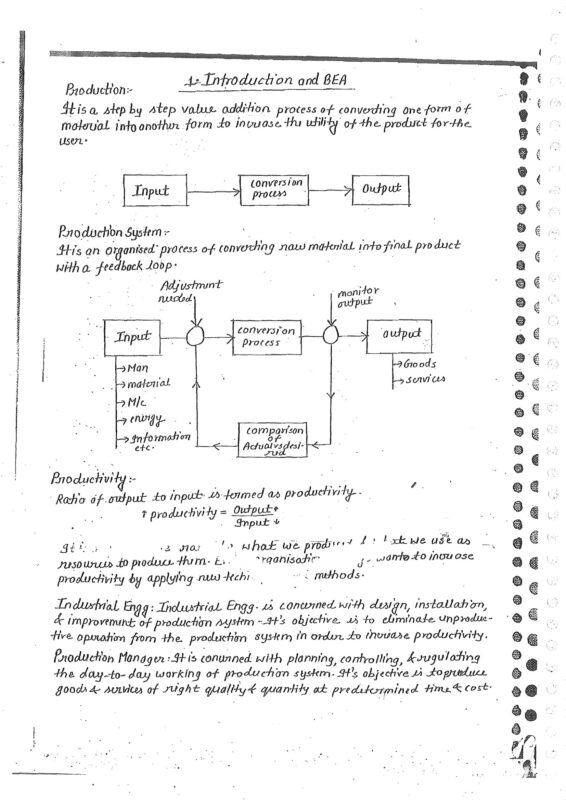 1- Introduction and BEA
Production:-
It is a step by step value addition process of converting one form of
material into another form to increase the utility of the product for the
user.
Input
conversion
process
Output
Production System:-
It is an organised process of converting raw material into final product
with a feedback loop.
Adjustment
needed
monitor
output
Input
conversion
process
output
→Man
→material
→M/c
→energy
→Information
etc.
→Goods
→services
comparison
of
Actual vs desi-
red
Productivity:-
Ratio of output to input is termed as productivity.
↑ productivity = Output↑
Input ↓
It what we we use as
resources to produce them. wants to increase
productivity by applying new methods.
Industrial Engg: Industrial Engg. is concerned with design, installation,
& improvement of production system. It's objective is to eliminate unproduc-
tive operation from the production system in order to increase productivity.
Production Manager: It is concerned with planning, controlling, & regulating
the day-to-day working of production system. It's objective is to produce
goods & services of right quality & quantity at predetermined time & cost.